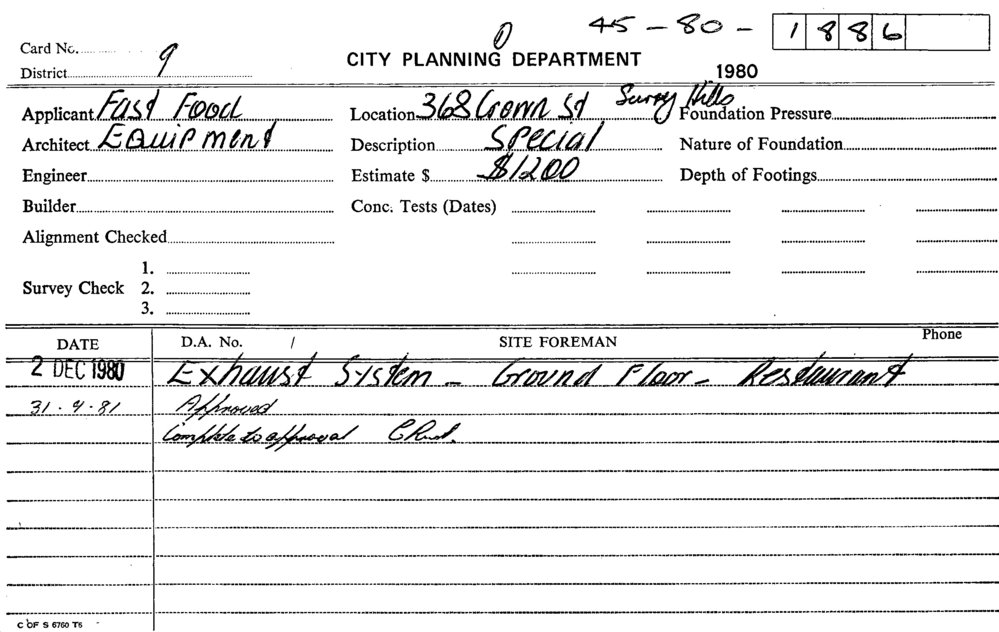 45-80- 1886
Card No. 9
CITY PLANNING DEPARTMENT
District
1980
Applicant Fast Food Location 368 Crown St Surry Hills Foundation Pressure
Architect Equipment Description Special Nature of Foundation
Engineer Estimate $ $1200 Depth of Footings
Builder Conc. Tests (Dates)
Alignment Checked
1.
Survey Check 2.
3.
DATE D.A. No. / SITE FOREMAN Phone
2 DEC 1980 Exhaust System - Ground Floor - Restaurant
31.4.81 Approved
Complete to approval
C OF S 6760 T6